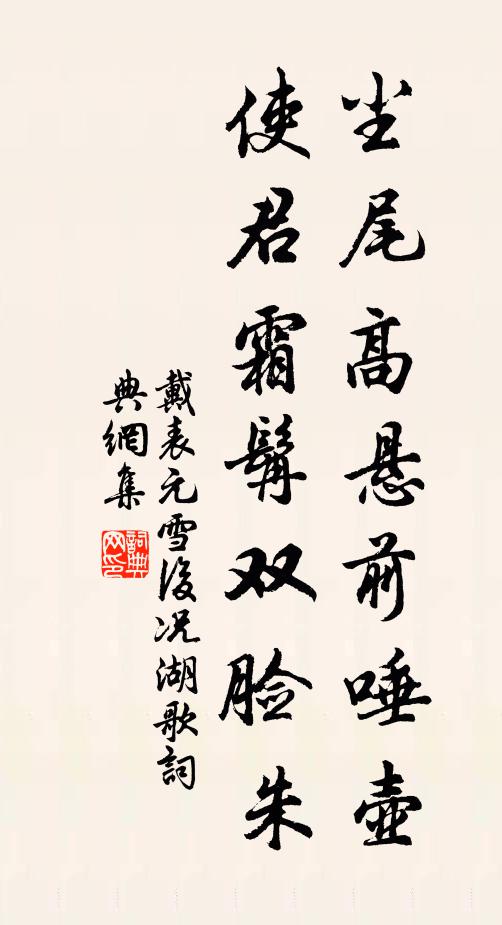 尘尾高悬前唾壺
使君霜鬓双脸朱
戴表元雪後况湖歌詞
典網集
詞典
网印